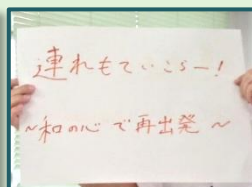 連れもていこらー!
~和の心で再出発~